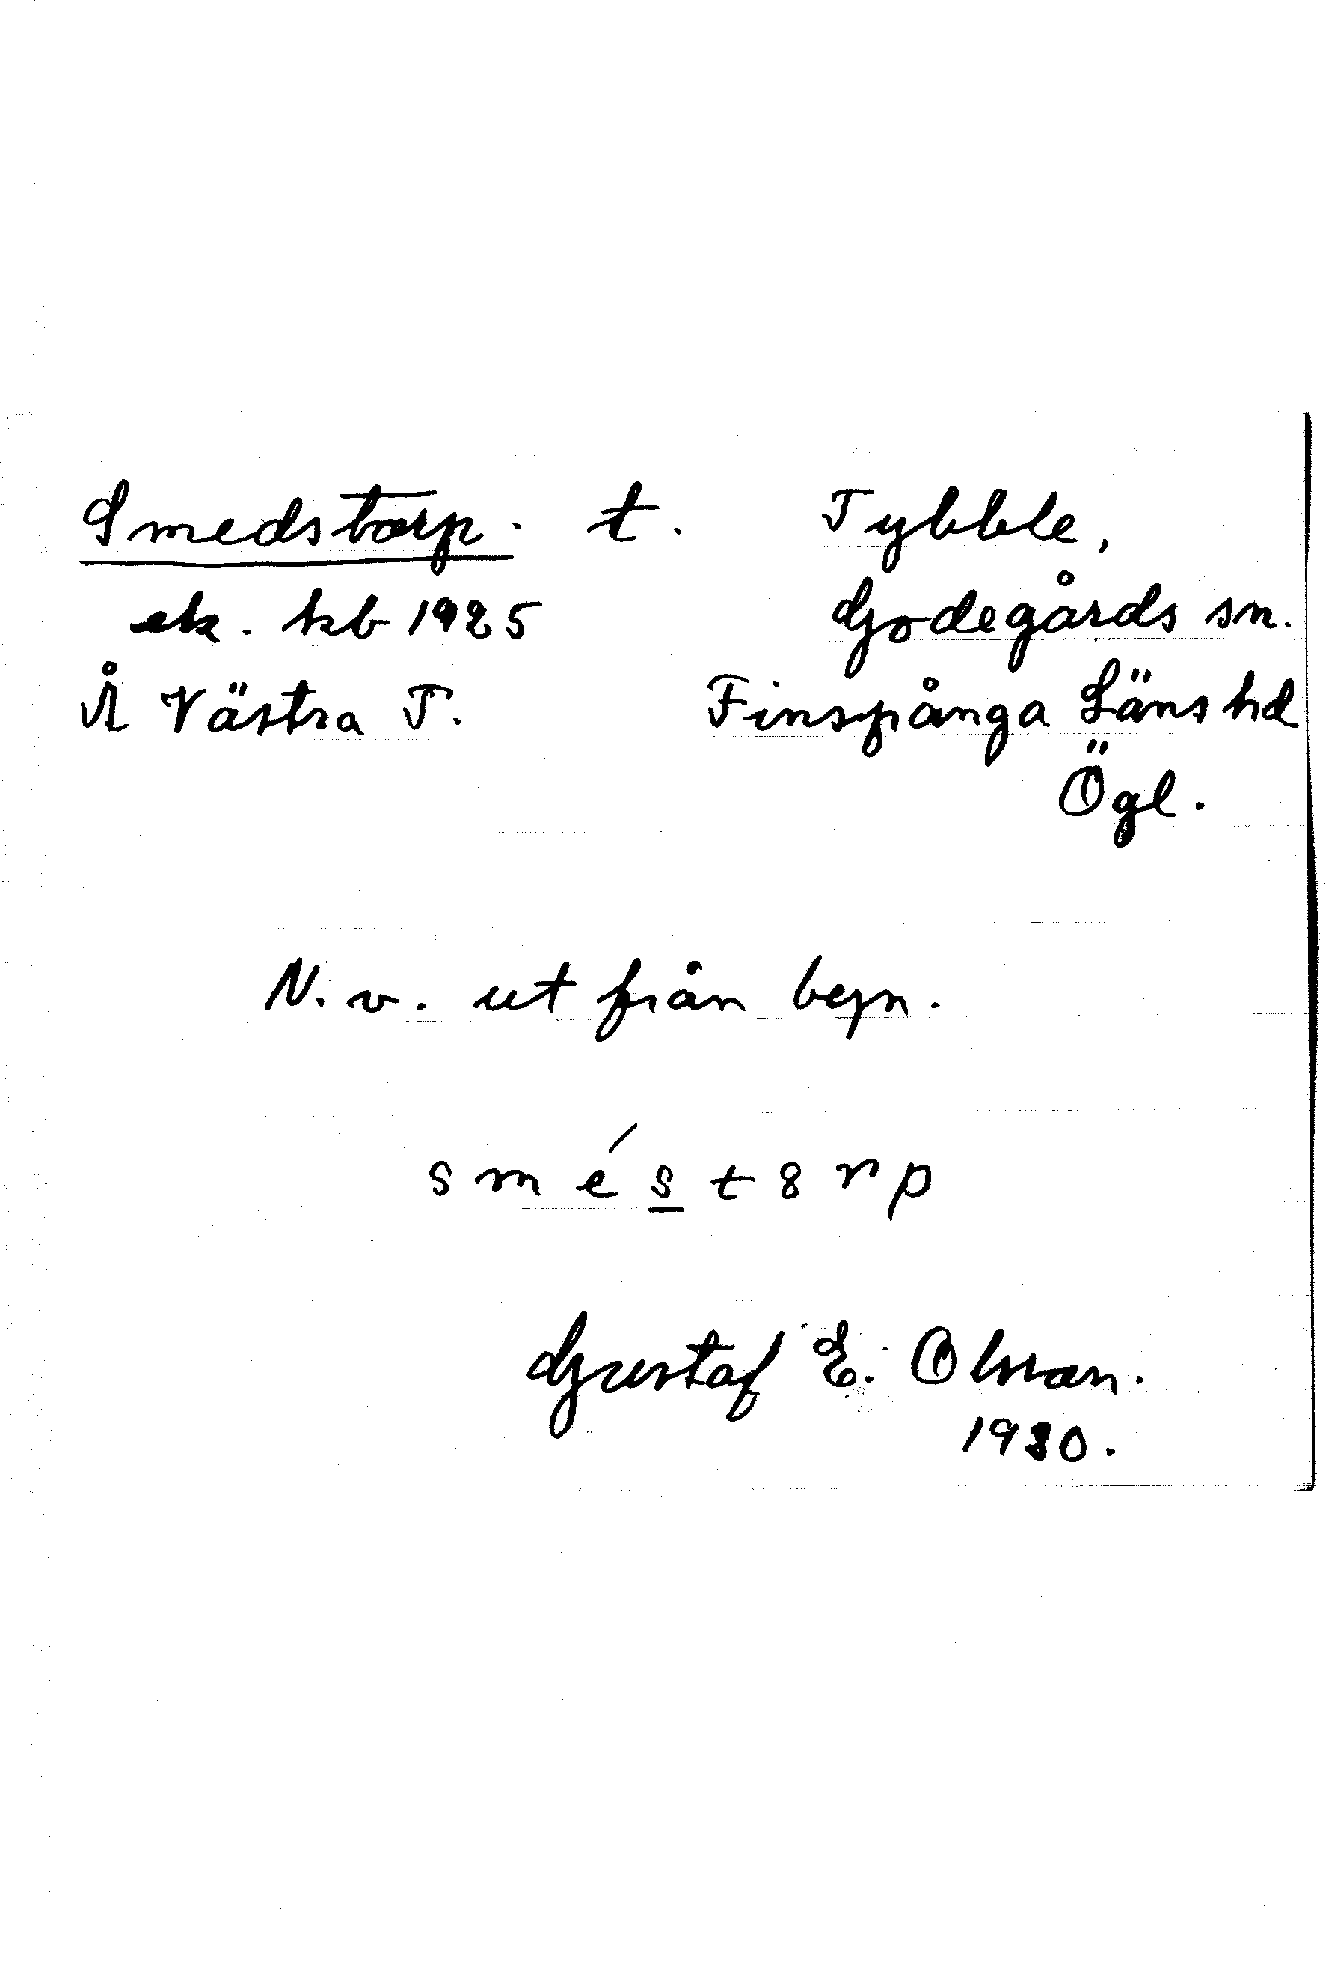 Smedstorp. t. Tybble,
ek. kb 1925 Godegårds sn.
Å Västra T. Finspånga Läns hd
Ögl.
N. v. ut från byn.
smés̲t8rp
Gustaf E. Olsson.
1930.